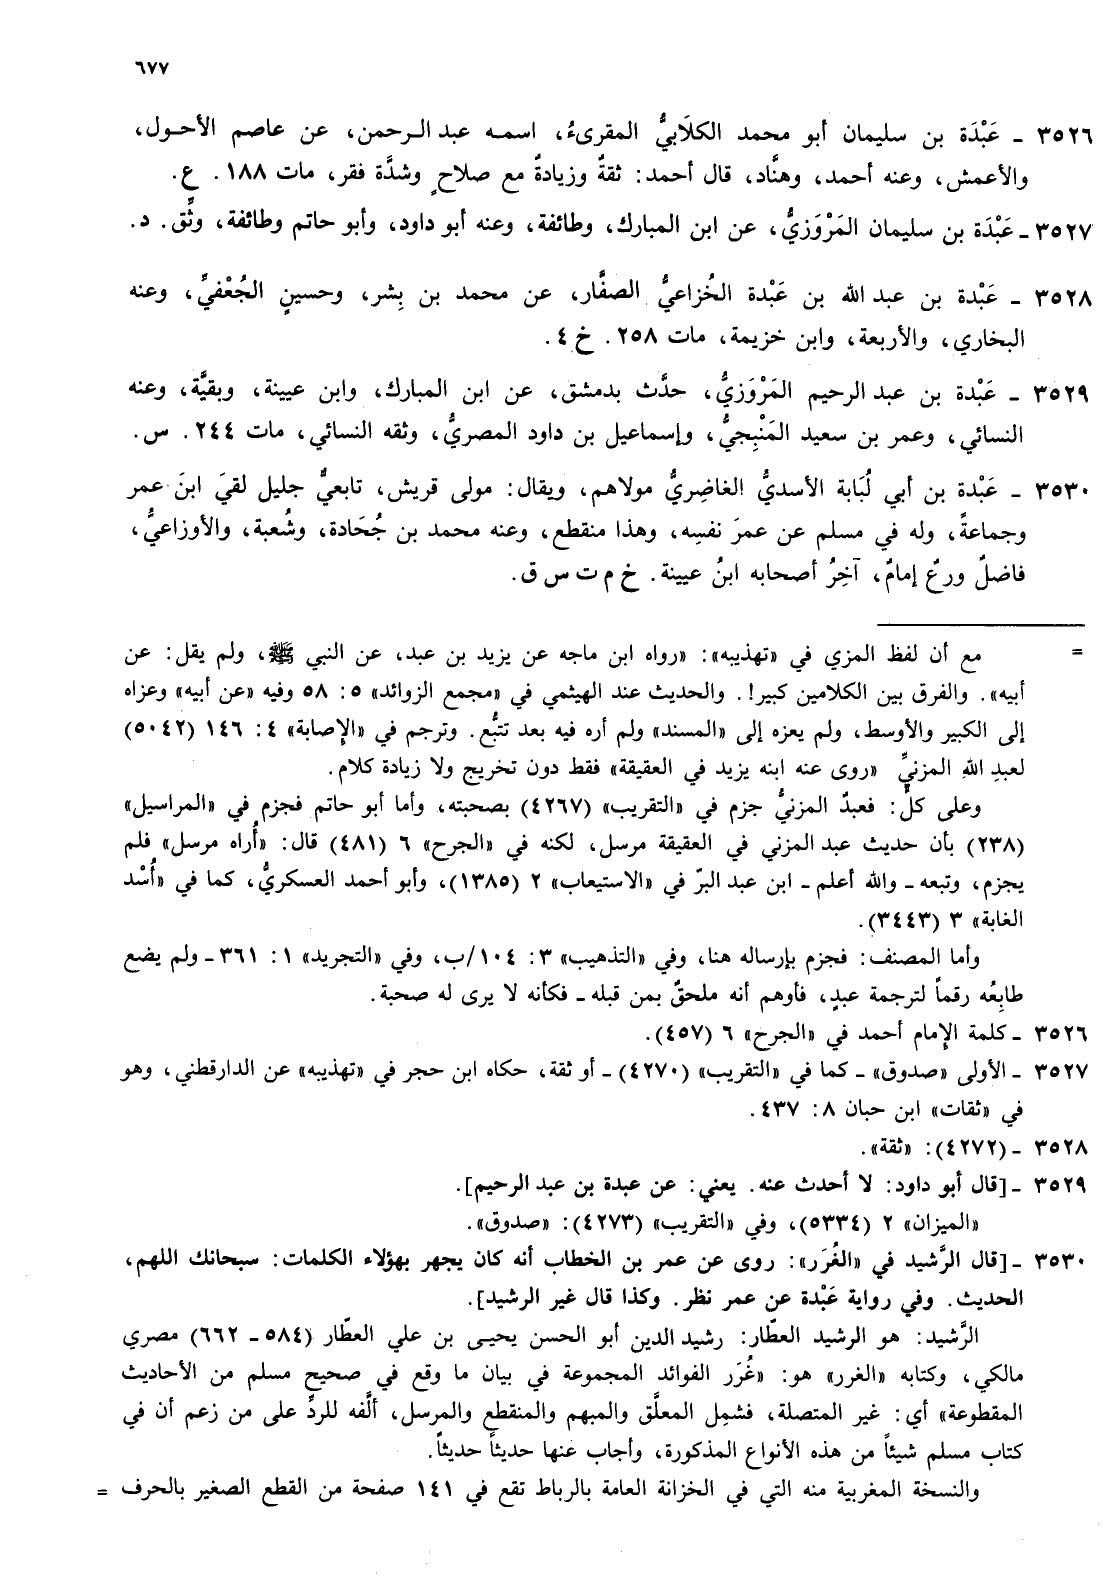 ٦٧٧
٣٥٢٦ ـ عَبْدَة بن سليمان أبو محمد الكلَابيُّ المقرىءُ، اسمـه عبد الـرحمن، عن عاصم الأحـول،
والأعمش، وعنه أحمد، وهنَّاد، قال أحمد: ثقةٌ وزيادةٌ مع صلاحٍ وشدَّة فقر، مات ١٨٨. ع.
٣٥٢٧ ـ عَبْدَة بن سليمان المَرْوَزيُّ، عن ابن المبارك، وطائفة، وعنه أبو داود، وأبو حاتم وطائفة، وثِّق. د.
٣٥٢٨ ـ عَبْدة بن عبد الله بن عَبْدة الخُزاعيُّ الصفَّار، عن محمد بن بِشر، وحسينٍ الجُعْفيِّ، وعنه
البخاري، والأربعة، وابن خزيمة، مات ٢٥٨. خ ٤.
٣٥٢٩ ـ عَبْدة بن عبد الرحيم المَرْوَزيُّ، حدَّث بدمشق، عن ابن المبارك، وابن عيينة، وبقيَّة، وعنه
النسائي، وعمر بن سعيد المَنْبِجيُّ، وإسماعيل بن داود المصريُّ، وثقه النسائي، مات ٢٤٤. س.
٣٥٣٠ ـ عَبْدة بن أبي لُبَابة الأسديُّ الغاضِريُّ مولاهم، ويقال: مولى قريش، تابعيٌّ جليل لقيَ ابنَ عمر
وجماعةً، وله في مسلم عن عمرَ نفسِه، وهذا منقطع، وعنه محمد بن جُحَادة، وشُعبة، والأوزاعيُّ،
فاضلٌ ورعٌ إمامٌ، آخِرُ أصحابه ابنُ عيينة. خ م ت س ق.
= مع أن لفظ المزي في «تهذيبه»: «رواه ابن ماجه عن يزيد بن عبد، عن النبي ﷺ، ولم يقل: عن
أبيه». والفرق بين الكلامين كبير!. والحديث عند الهيثمي في «مجمع الزوائد» ٥: ٥٨ وفيه «عن أبيه» وعزاه
إلى الكبير والأوسط، ولم يعزه إلى «المسند» ولم أره فيه بعد تتبُّع. وترجم في «الإصابة» ٤: ١٤٦ (٥٠٤٢)
لعبدِ اللهِ المزنيِّ «روى عنه ابنه يزيد في العقيقة» فقط دون تخريج ولا زيادة كلام.
وعلى كلٍّ: فعبدٌ المزنيُّ جزم في «التقريب» (٤٢٦٧) بصحبته، وأما أبو حاتم فجزم في «المراسيل»
(٢٣٨) بأن حديث عبد المزني في العقيقة مرسل، لكنه في «الجرح» ٦ (٤٨١) قال: «أُراه مرسل» فلم
يجزم، وتبعه ـ والله أعلم ـ ابن عبد البرّ في «الاستيعاب» ٢ (١٣٨٥)، وأبو أحمد العسكريُّ، كما في «أُسْد
الغابة» ٣ (٣٤٤٣).
وأما المصنف: فجزم بإرساله هنا، وفي «التذهيب» ٣: ١٠٤/ب، وفي «التجريد» ١: ٣٦١ ـ ولم يضع
طابِعُه رقماً لترجمة عبدٍ، فأوهم أنه ملحقٌ بمن قبله ـ فكأنه لا يرى له صحبة.
٣٥٢٦ ـ كلمة الإمام أحمد في «الجرح» ٦ (٤٥٧).
٣٥٢٧ ـ الأولى «صدوق» ـ كما في «التقريب» (٤٢٧٠) ـ أو ثقة، حكاه ابن حجر في «تهذيبه» عن الدارقطني، وهو
في «ثقات» ابن حبان ٨: ٤٣٧.
٣٥٢٨ ـ (٤٢٧٢): «ثقة».
٣٥٢٩ ـ [قال أبو داود: لا أحدث عنه. يعني: عن عبدة بن عبد الرحيم].
«الميزان» ٢ (٥٣٣٤)، وفي «التقريب» (٤٢٧٣): «صدوق».
٣٥٣٠ ـ [قال الرَّشيد في «الغُرَر»: روى عن عمر بن الخطاب أنه كان يجهر بهؤلاء الكلمات: سبحانك اللهم،
الحديث. وفي رواية عَبْدة عن عمر نظر. وكذا قال غير الرشيد].
الرَّشيد: هو الرشيد العطّار: رشيد الدين أبو الحسن يحيـى بن علي العطّار (٥٨٤ ـ ٦٦٢) مصري
مالكي، وكتابه «الغرر» هو: «غُرَر الفوائد المجموعة في بيان ما وقع في صحيح مسلم من الأحاديث
المقطوعة» أي: غير المتصلة، فشمِل المعلَّق والمبهم والمنقطع والمرسل، ألَّفه للردِّ على من زعم أن في
كتاب مسلم شيئاً من هذه الأنواع المذكورة، وأجاب عنها حديثاً حديثاً.
والنسخة المغربية منه التي في الخزانة العامة بالرباط تقع في ١٤١ صفحة من القطع الصغير بالحرف =